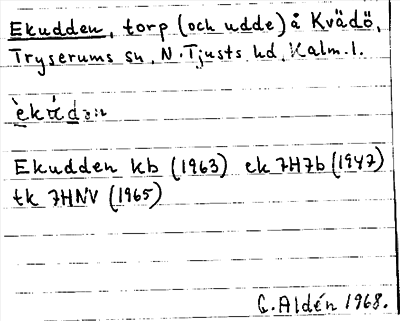 Ekudden, torp (och udde) å Kvädö,
Tryserums sn, N. Tjusts hd, Kalm. l.
Ekudden kb (1963) ek 7H7b (1947)
tk 7HNV (1965)
G. Aldén 1968.